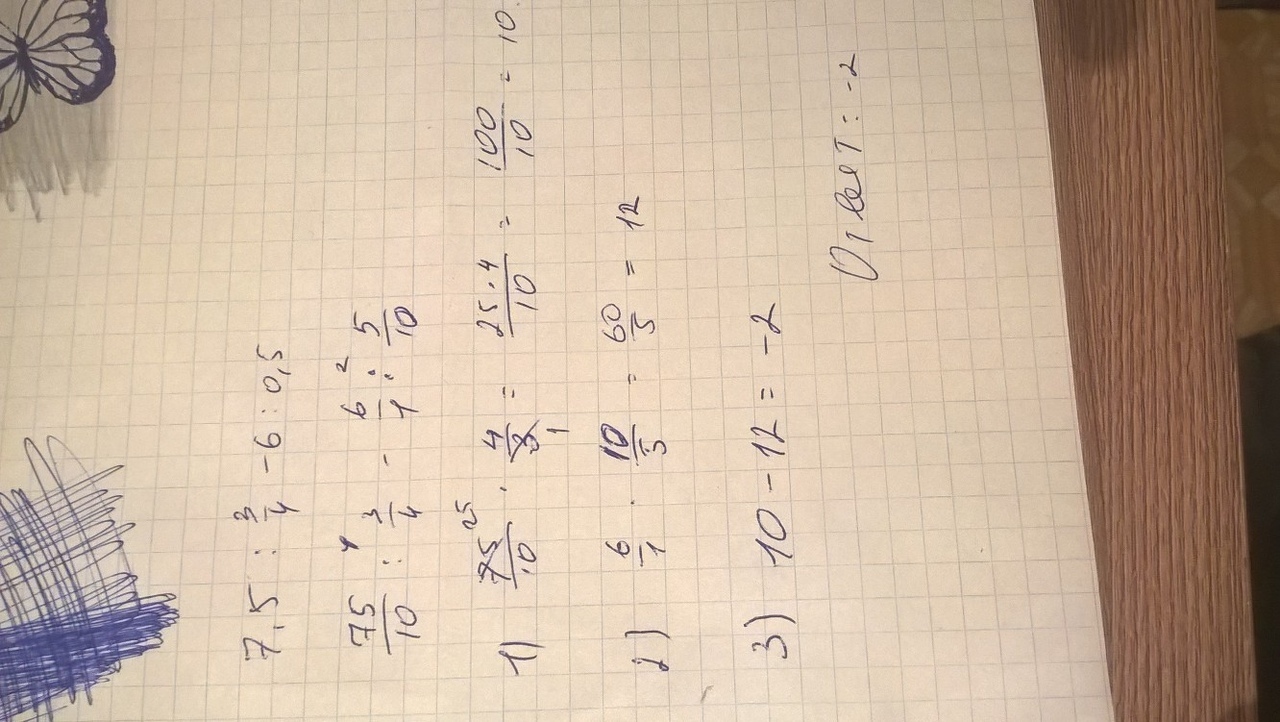 7,5 : 3/4 - 6 : 0,5
75/10 :¹ 3/4 - 6/1 :² 5/10
1) 75/10 ²⁵ · 4/3 1 = 25·4/10 = 100/10 = 10.
2) 6/1 · 10/5 = 60/5 = 12
3) 10 - 12 = -2
Ответ: -2